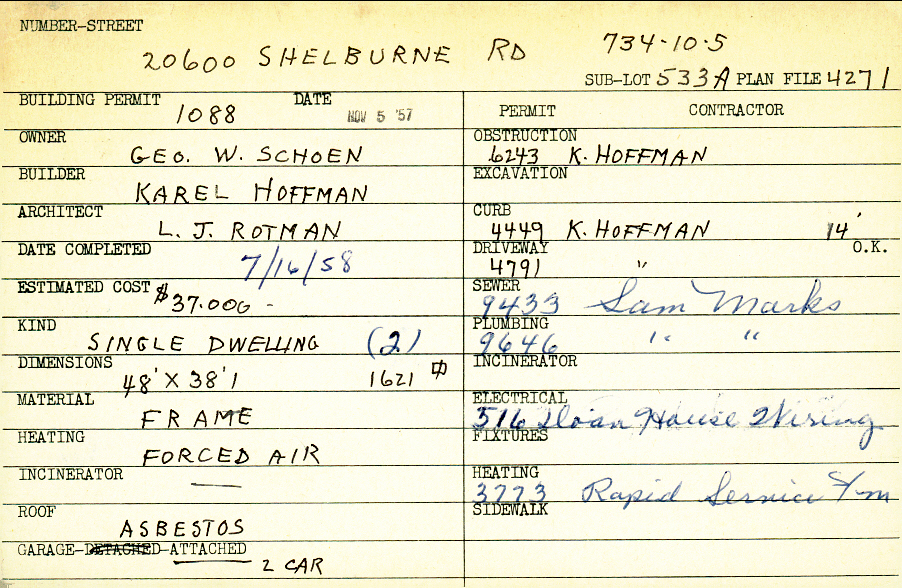 NUMBER-STREET
20600 SHELBURNE RD 734-10-5
SUB-LOT 533A PLAN FILE 4271
BUILDING PERMIT 1088 DATE NOV 5 '57
OWNER
GEO. W. SCHOEN
BUILDER
KAREL HOFFMAN
ARCHITECT
L. J. ROTMAN
DATE COMPLETED
7/16/58
ESTIMATED COST $37.000 -
KIND
SINGLE DWELLING (2)
DIMENSIONS
48' X 38'1 1621
MATERIAL
FRAME
HEATING
FORCED AIR
INCINERATOR —
ROOF
ASBESTOS
GARAGE-DETACHED-ATTACHED
2 CAR
PERMIT CONTRACTOR
OBSTRUCTION
6243 K. HOFFMAN
EXCAVATION
CURB
4449 K. HOFFMAN 14'
DRIVEWAY O.K.
4791 "
SEWER
9433 Sam Marks
PLUMBING
9646 " "
INCINERATOR
ELECTRICAL
516 Sloan House Wiring
FIXTURES
HEATING
3773 Rapid Service
SIDEWALK